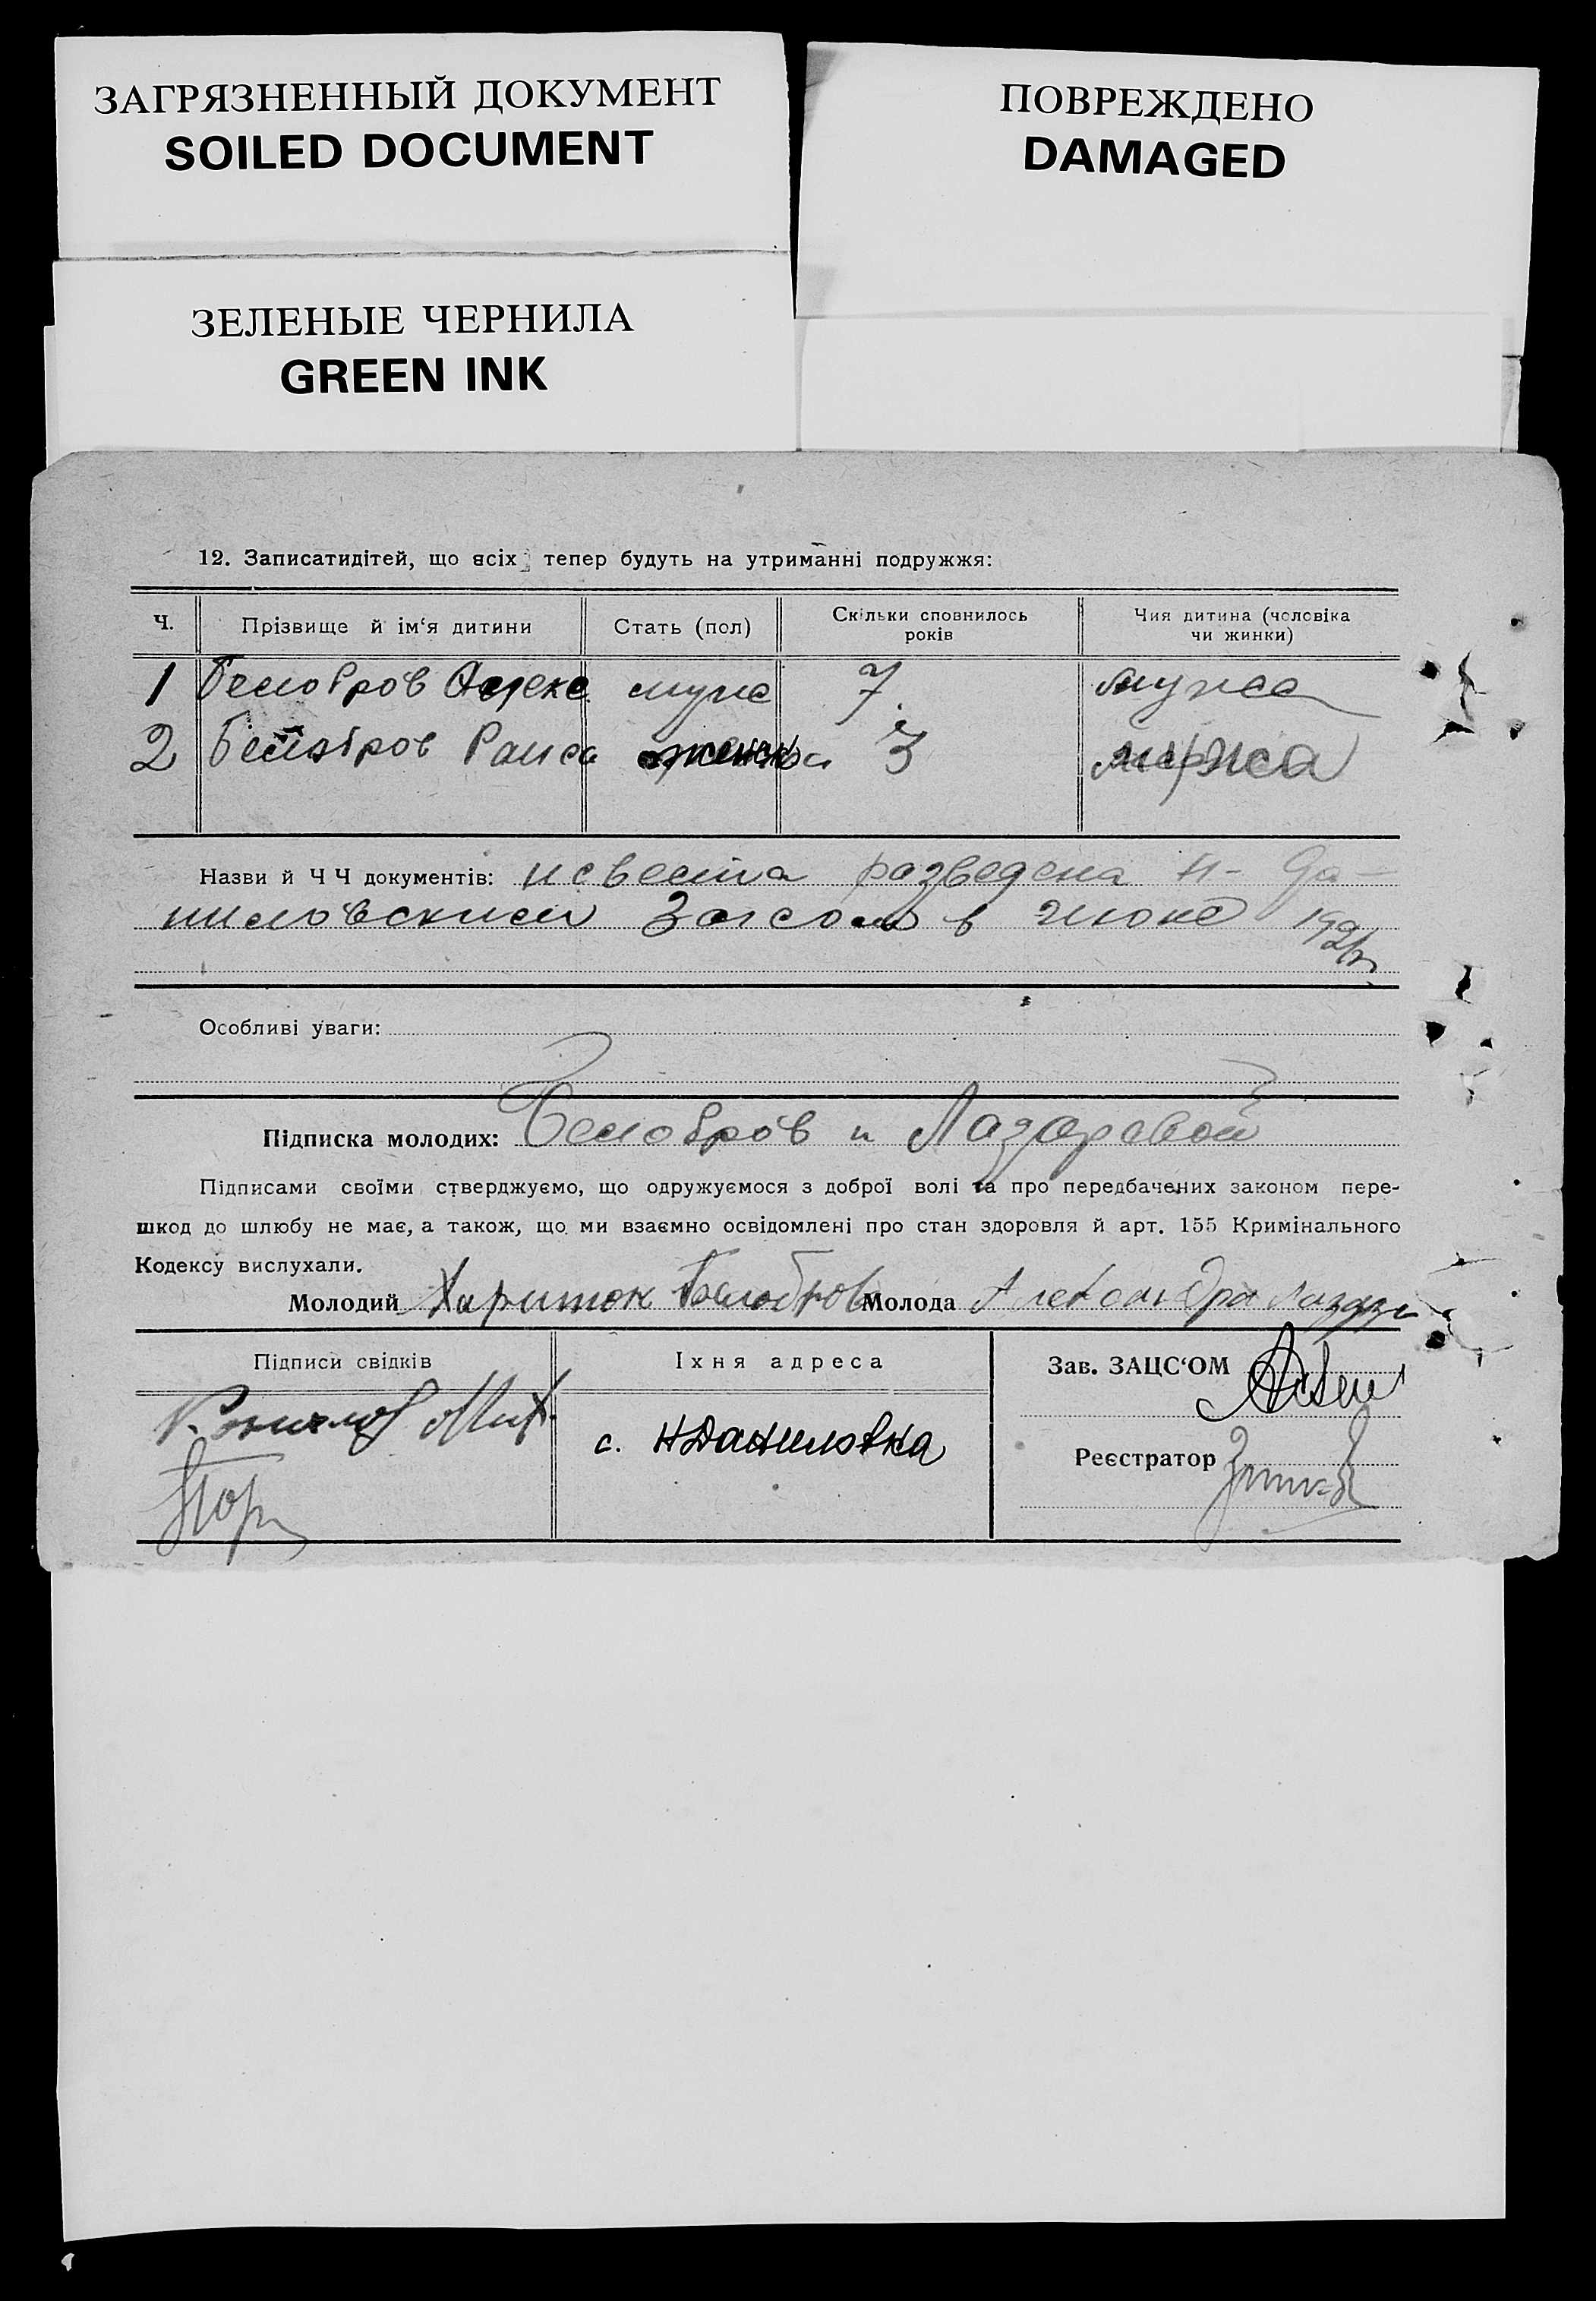 ЗАГРЯЗНЕННЫЙ ДОКУМЕНТ
SOILED DOCUMENT
ПОВРЕЖДЕНО
DAMAGED
ЗЕЛЕНЫЕ ЧЕРНИЛА
GREEN INK
12. Записатидітей, що всіх тепер будуть на утриманні подружжя:
Ч. Прізвище й ім‘я дитини Стать (пол) Скільки сповнилось років Чия дитина (чоловіка чи жинки)
1 Белобров Алекс муже 7 мужа
2 Белобров Раиса 3 мужа
Назви й Ч Ч документів: невеста разведена Н- Да-
ниловским Загсом в июне
Особливі уваги:
Підписка молодих: Белобров и Лазаревой
Підписами своїми стверджуємо, що одружуємося з доброї волі та про передбачених законом пере-
шкод до шлюбу не має, а також, що ми взаємно освідомлені про стан здоровля й арт. 155 Кримінального
Кодексу вислухали.
Молодий Харитон Белобров Молода Александра
Підписи свідків Їхня адреса Зав. ЗАЦС‘ОМ
с. НДаниловка
Реєстратор